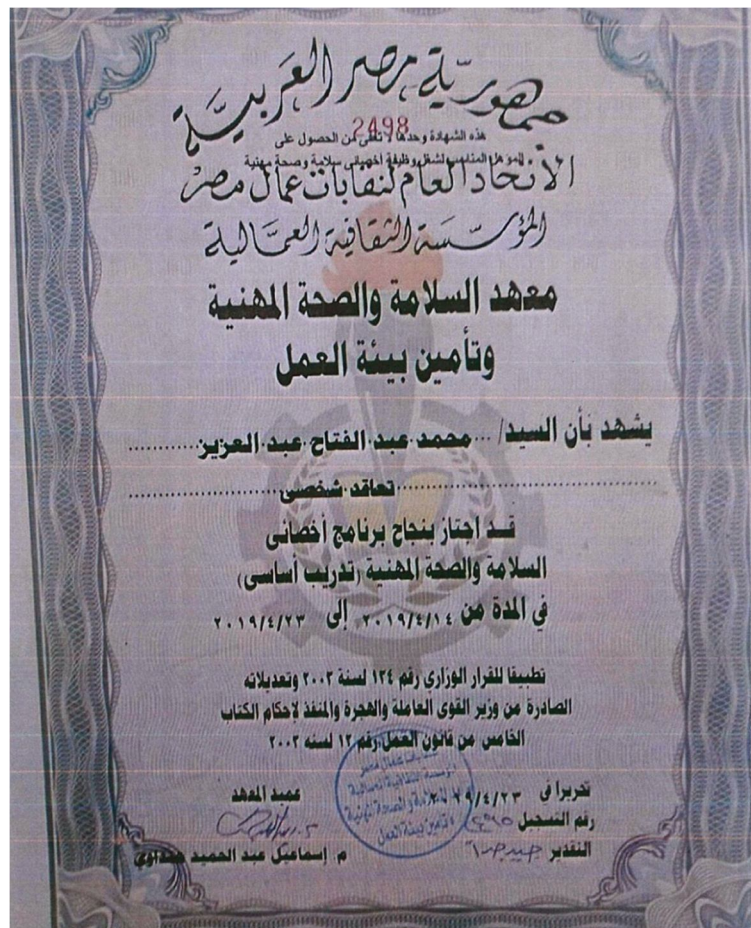 جمهورية مصر العربية
2498
هذه الشهادة وحدها لا تكفى من الحصول على
المؤهل المناسب لشغل وظيفة اخصائى سلامة وصحة مهنية
الاتحاد العام لنقابات عمال مصر
المؤسسة الثقافية العمالية
معهد السلامة والصحة المهنية
وتأمين بيئة العمل
يشهد بأن السيد/ ...محمد عبد الفتاح عبد العزيز...........
تعاقد شخصى
قد اجتاز بنجاح برنامج أخصائى
السلامة والصحة المهنية (تدريب أساسى)
في المدة من ٢٠١٩/٤/١٤ إلى ٢٠١٩/٤/٢٣
تطبيقا للقرار الوزاري رقم ١٣٤ لسنة ٢٠٠٣ وتعديلاته
الصادرة من وزير القوى العاملة والهجرة والمنفذ لاحكام الكتاب
الخامس من قانون العمل رقم ١٢ لسنه ٢٠٠٣
تحريرا في ٢٠١٩/٤/٢٣
عميد المعهد
رقم التسجيل
التقدير جيد جدا
م. إسماعيل عبد الحميد هنداوي
المؤسسة الثقافية العمالية
السلامة والصحة المهنية
وتأمين بيئة العمل